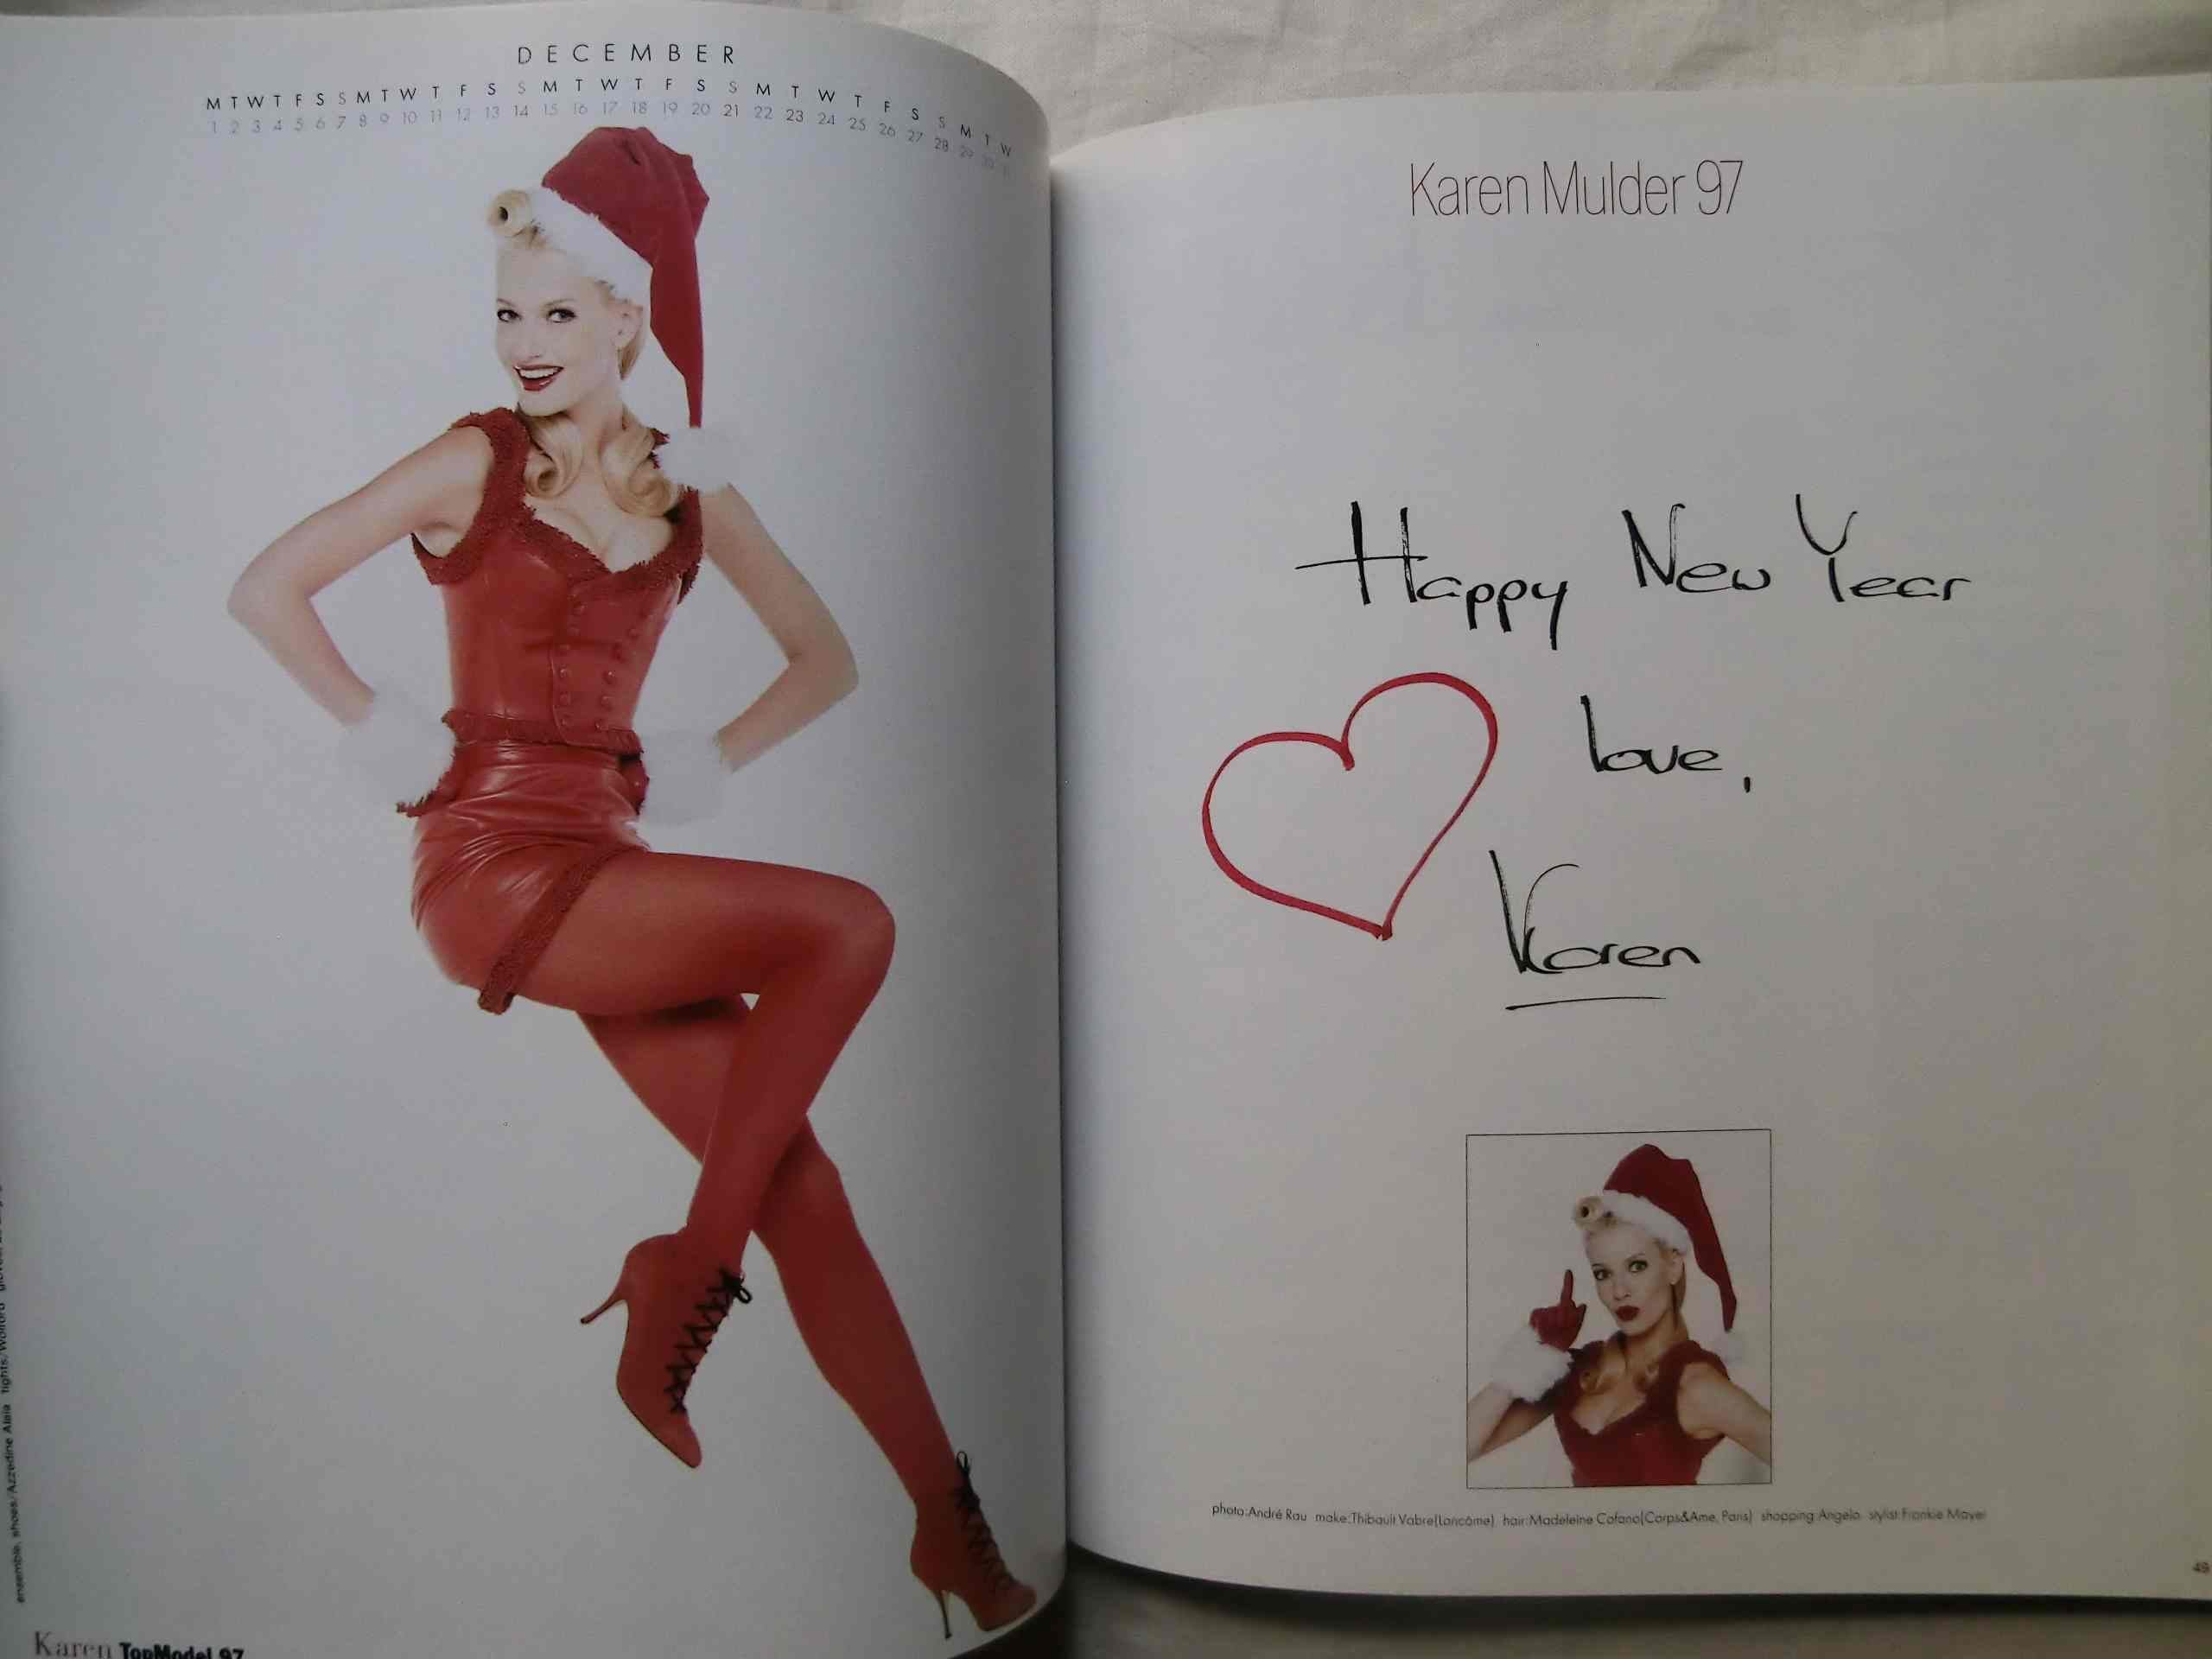 DECEMBER
M T W T F S S M T W T F S S M T W T F S S M T W T F S S M T W
1 2 3 4 5 6 7 8 9 10 11 12 13 14 15 16 17 18 19 20 21 22 23 24 25 26 27 28 29 30 31
ensemble, shoes/Azzedine Alaïa tights/Wolford
Karen TopModel 97
Karen Mulder 97
Happy New Year
Love,
Karen
photo:André Rau make:Thibault Vabre(Lancôme) hair:Madeleine Cofano(Corps&Ame, Paris) shopping:Angelo stylist:Frankie Mayer
49